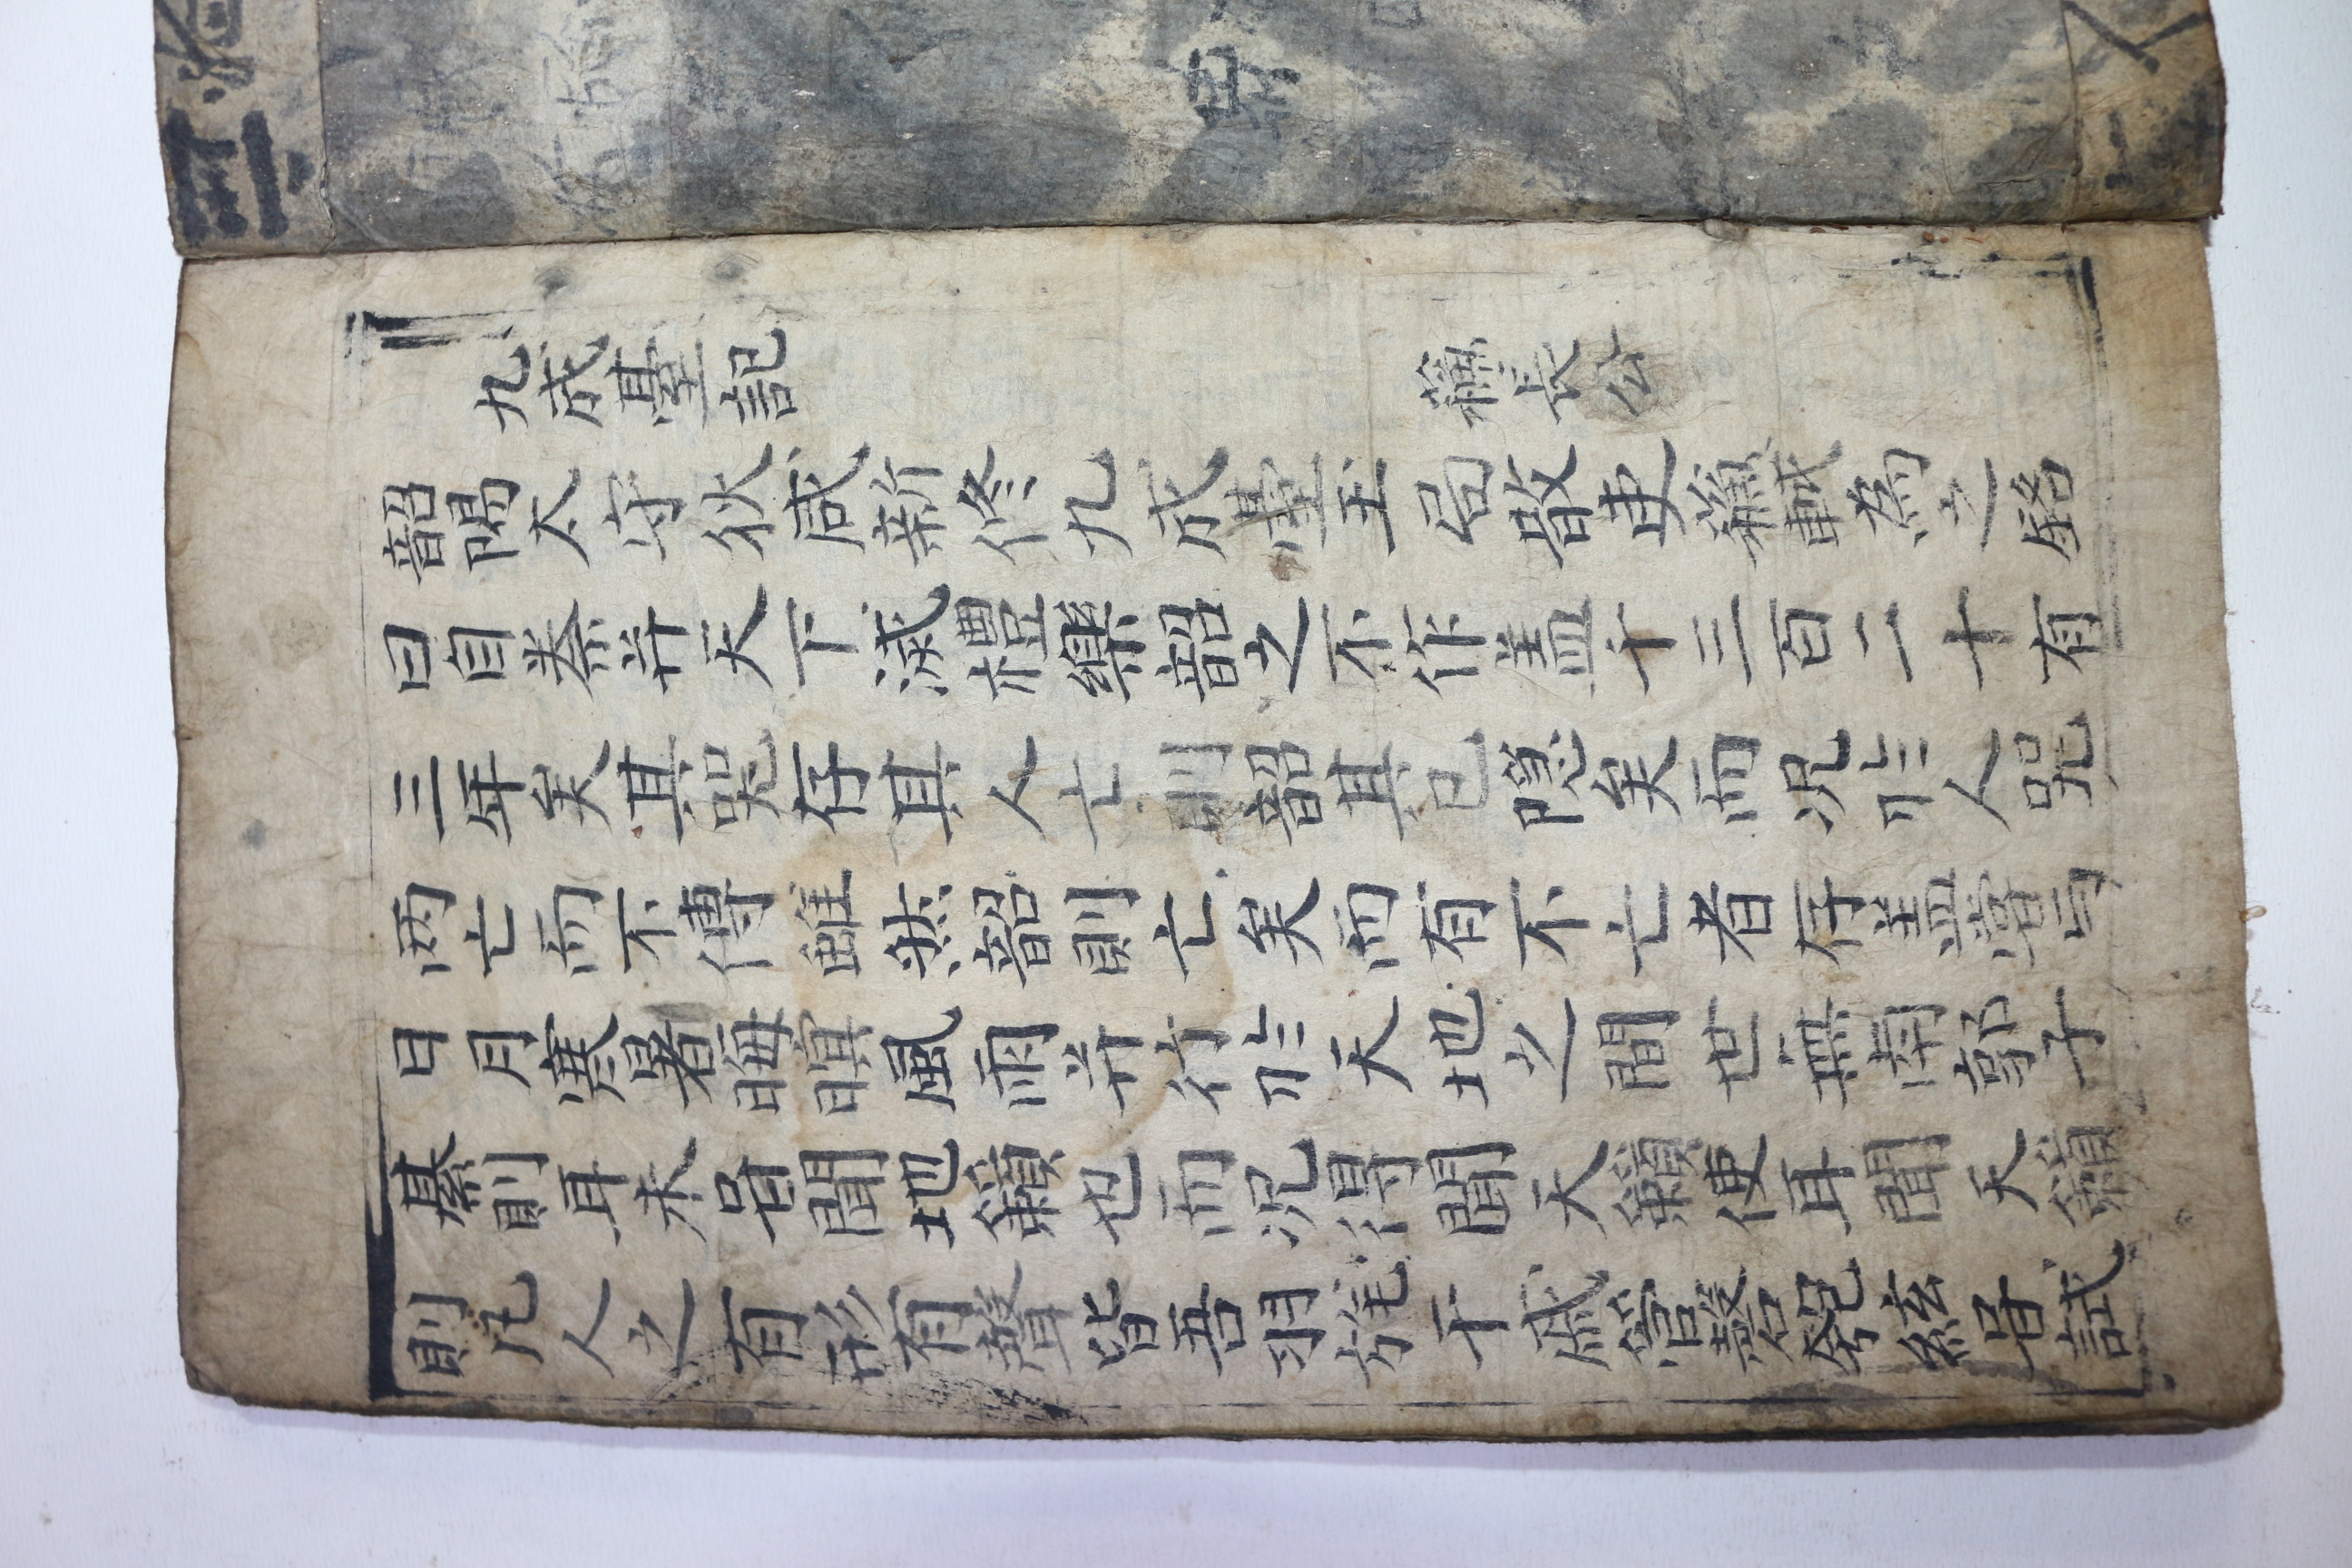 九成臺記 蘓長公
韶陽太守狄咸新修九成臺玉局散吏蘓軾為之銘
曰自秦并天下滅禮樂韶之不作盖千三百二十有
三年矣其器存其人亡則韶其已隠矣而况於人器
两亡而不傳雖然韶則亡矣而有不亡者存盖甞与
日月寒暑晦暝風雨并行於天地之間世無南郭子
綦則耳未甞聞地籟也而况得聞天籟使耳聞天籟
則凡人之有形有聲皆吾羽旄干戚管磬匏絃甞試